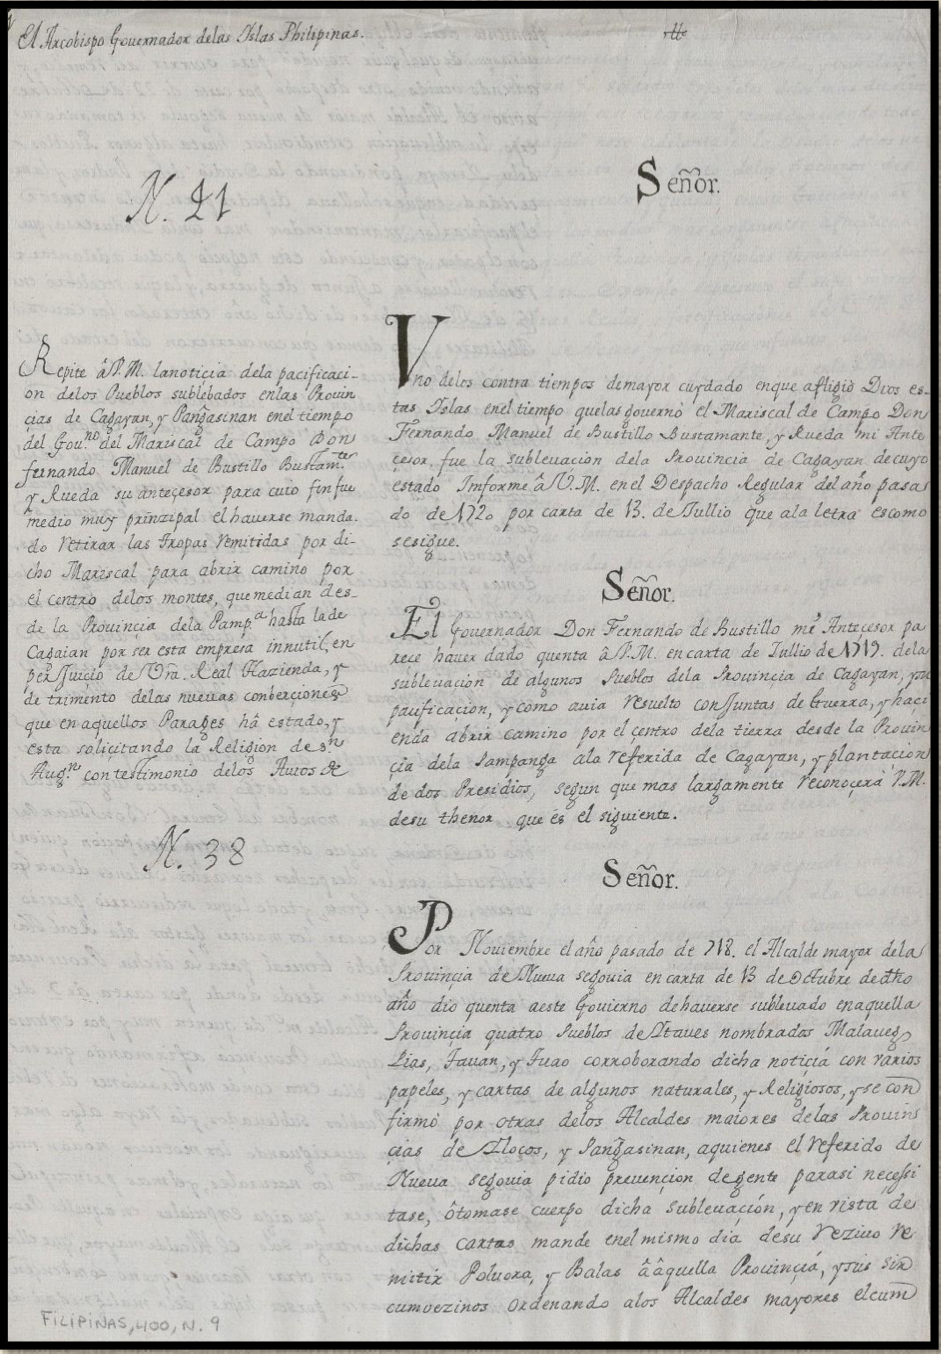 El Arcobispo Governador delas Islas Philipinas.
N. 21
Repite â V.M. lanoticia dela pacificaci-
on delos Pueblos sublebados enlas Provin
cias de Cagayan, y Pangasinan enel tiempo
del Gou.no del Mariscal de Campo Don
fernando Manuel de Bustillo Bustam.te
y Rueda su anteçesor para cuio fin fue
medio muy prinzipal el haverse manda-
do retirar las tropas remitidas por di-
cho Mariscal para abrir camino por
el centro delos montes, que median des-
de la Provincia dela Pamp.a hasta la de
Cagaian por ser esta empresa innutil, en
perJuicio de Vra. Real Hazienda, y
detrimento delas nuevas conberçiones
que en aquellos Parages hâ estado, y
esta soliçitando la Religion de Sn
Aug.n con testimonio delos Autos &
N. 38
FILIPINAS, 400, N. 9
Señor.
Vno delos contra tiempos demayor cuydado enque afligiò Dios es-
tas Islas enel tiempo quelas governò el Mariscal de Campo Don
Fernando Manuel de Bustillo Bustamante, y Rueda mi Ante
çesor fue la sublevacion dela Provincia de Cagayan de cuyo
estado Informe â V.M. en el Despacho Regular del año pasa
do de 1720 por carta de 13. de Jullio que ala letra es como
se sigue.
Señor.
El Governador Don Fernando de Bustillo mi Anteçesor pa
rece haver dado quenta â V.M. en carta de Jullio de 1719. dela
sublevacion de algunos Pueblos dela Provincia de Cagayan, y su
pacificacion, y como avia resuelto con Juntas de Guerra, y haci
enda abrir camino por el centro dela tierra desde la Provin
cia dela Pampanga ala referida de Cagayan, y plantacion
de dos Presidios, segun que mas largamente reconoçera V.M.
desu thenor que és el siguiente.
Señor.
Por Noviembre el año pasado de 718. el Alcalde mayor dela
Provincia de Nueva segovia en carta de 13 de Octubre de dho
año dio quenta aeste Govierno de haverse sublevado en aquella
Provinçia quatro Pueblos de Itaves nombrados Malaueg
corroborando dicha notiçiá con varios
papeles, y cartas de algunos naturales, y Religiosos, y se con
firmò por otras delos Alcaldes maiores delas Provins
çias de Ilocos, y Pangasinan, aquienes el referido de
Nueva segovia pidio prevençion de gente parasi neçessi
tase, ôtomase cuerpo dicha sublevaçión, y en vista de
dichas cartas mande enel mismo dia desu reziuo re
mitir Polvora, y Balas â âquella Provinçiá, y sus sir
cumvezinos ordenando alos Alcaldes mayores el cum